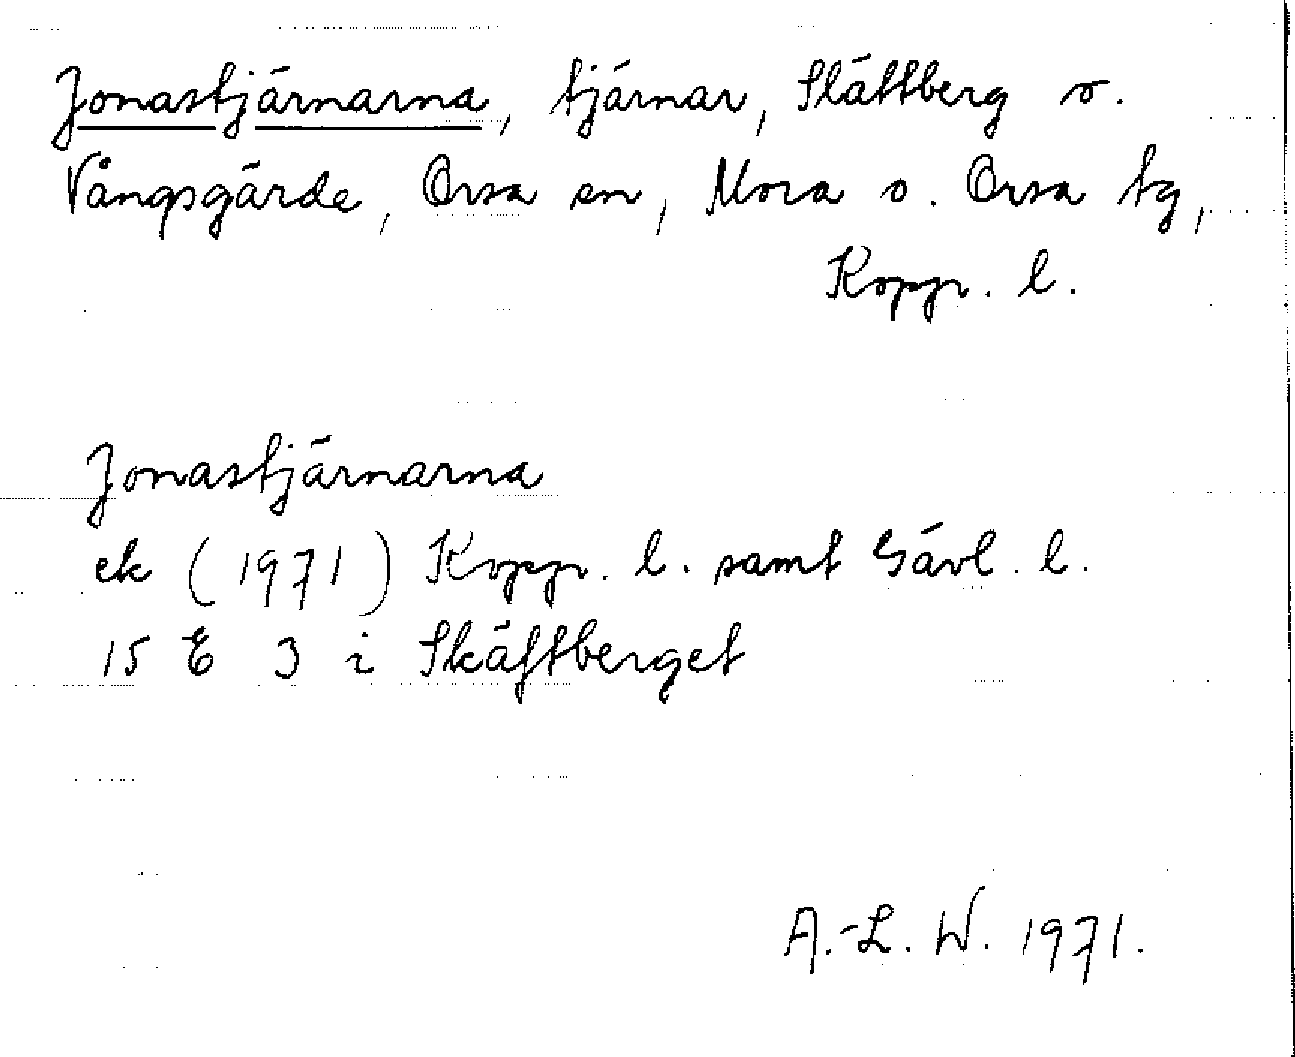 Jonastjärnarna, tjärnar, Slättberg o.
Vångsgärde, Orsa sn, Mora o. Orsa tg,
Kopp. l.
Jonastjärnarna
ek (1971) Kopp. l. samt Gävl. l.
15 E 3 i Skäftberget
A.-L. W. 1971.